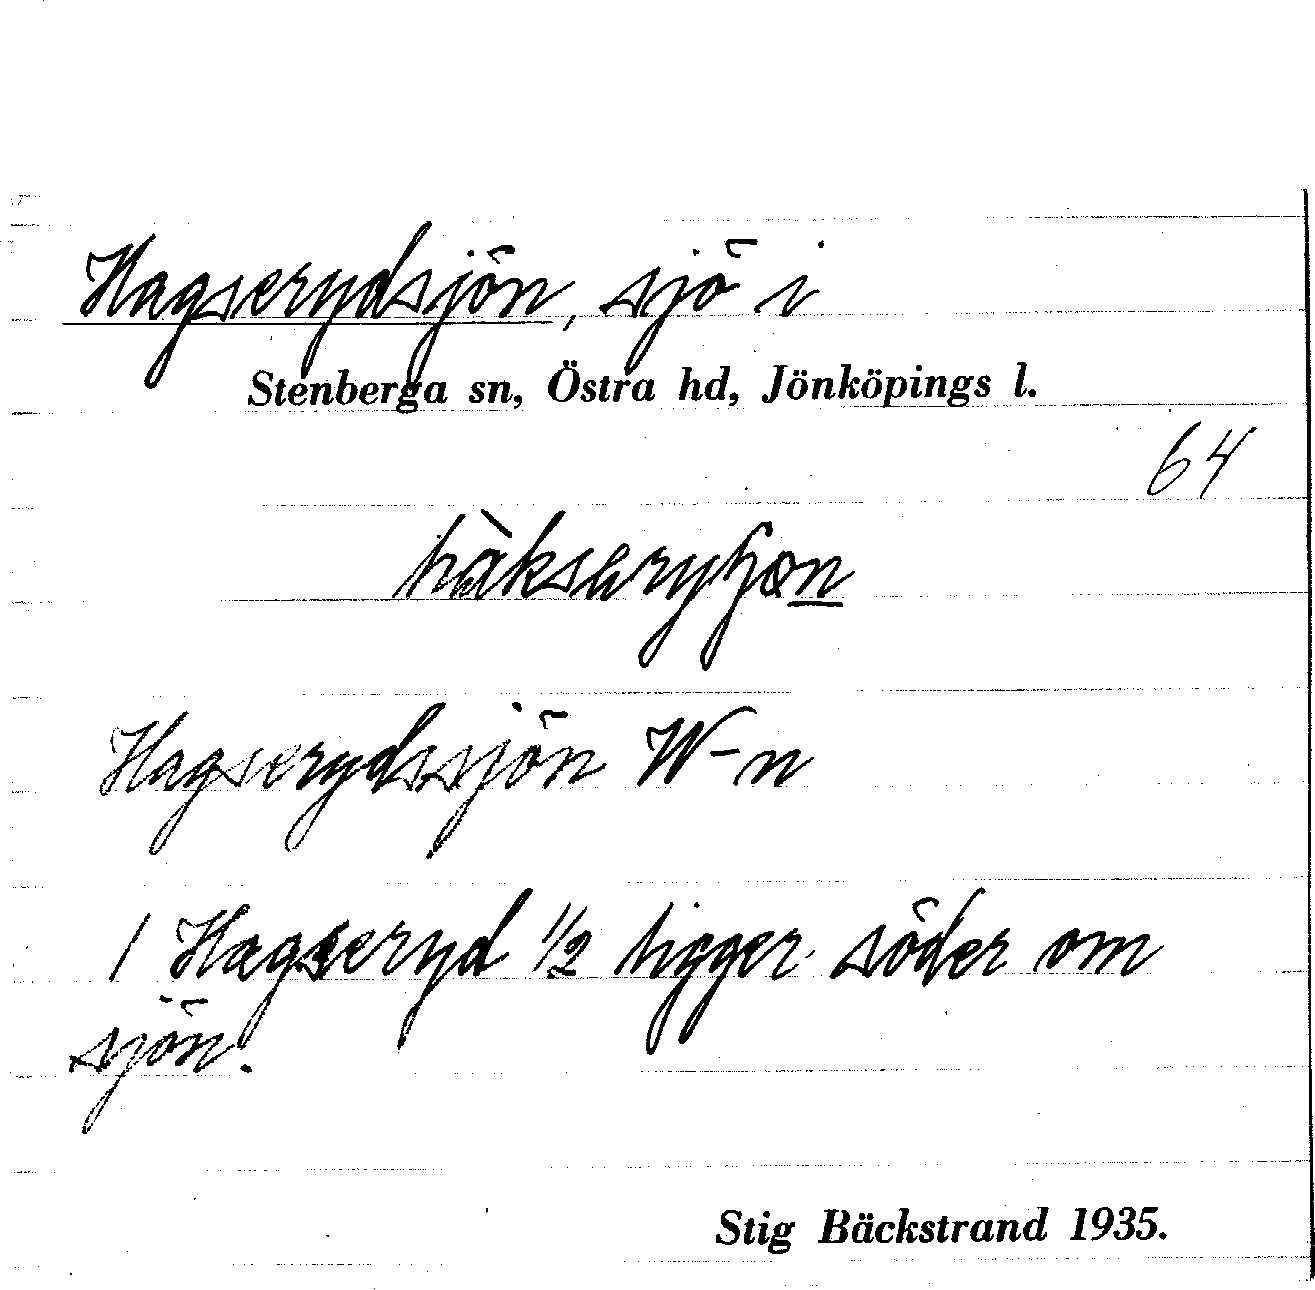 Hagserydsjön, sjö i
Stenberga sn, Östra hd, Jönköpings l.
64
Hagserydssjön W-n
1 Hagseryd 1/2 ligger söder om
sjön.
Stig Bäckstrand 1935.